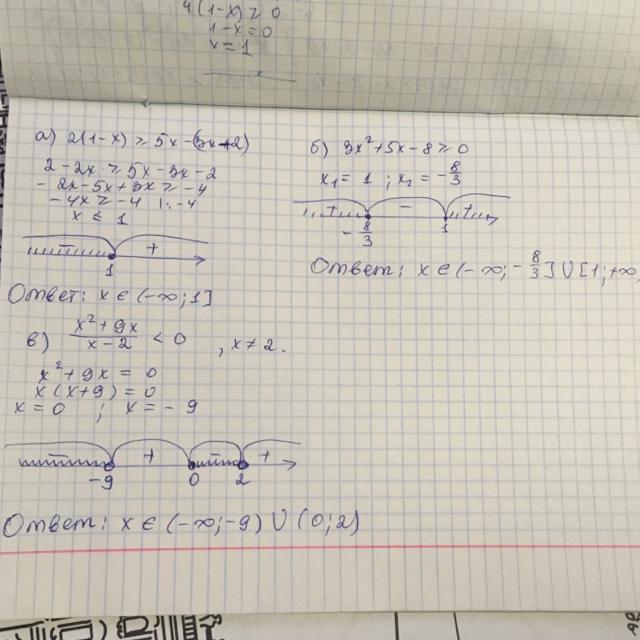 4(1-x) ≥ 0
1-x=0
x=1
а) 2(1-x) ≥ 5x-(3x+2)
2-2x ≥ 5x-3x-2
-2x-5x+3x ≥ -4
-4x ≥ -4 |:-4
x ≤ 1
- +
1
Ответ: x ∈ (-∞; 1]
б) 3x²+5x-8 ≥ 0
x₁ = 1 ; x₂ = -8/3
+ - +
-8/3 1
Ответ: x ∈ (-∞; -8/3] ∪ [1; +∞
в) (x²+9x)/(x-2) < 0 , x ≠ 2.
x²+9x = 0
x(x+9) = 0
x=0 ; x = -9
- + - +
-9 0 2
Ответ: x ∈ (-∞; -9) ∪ (0; 2)